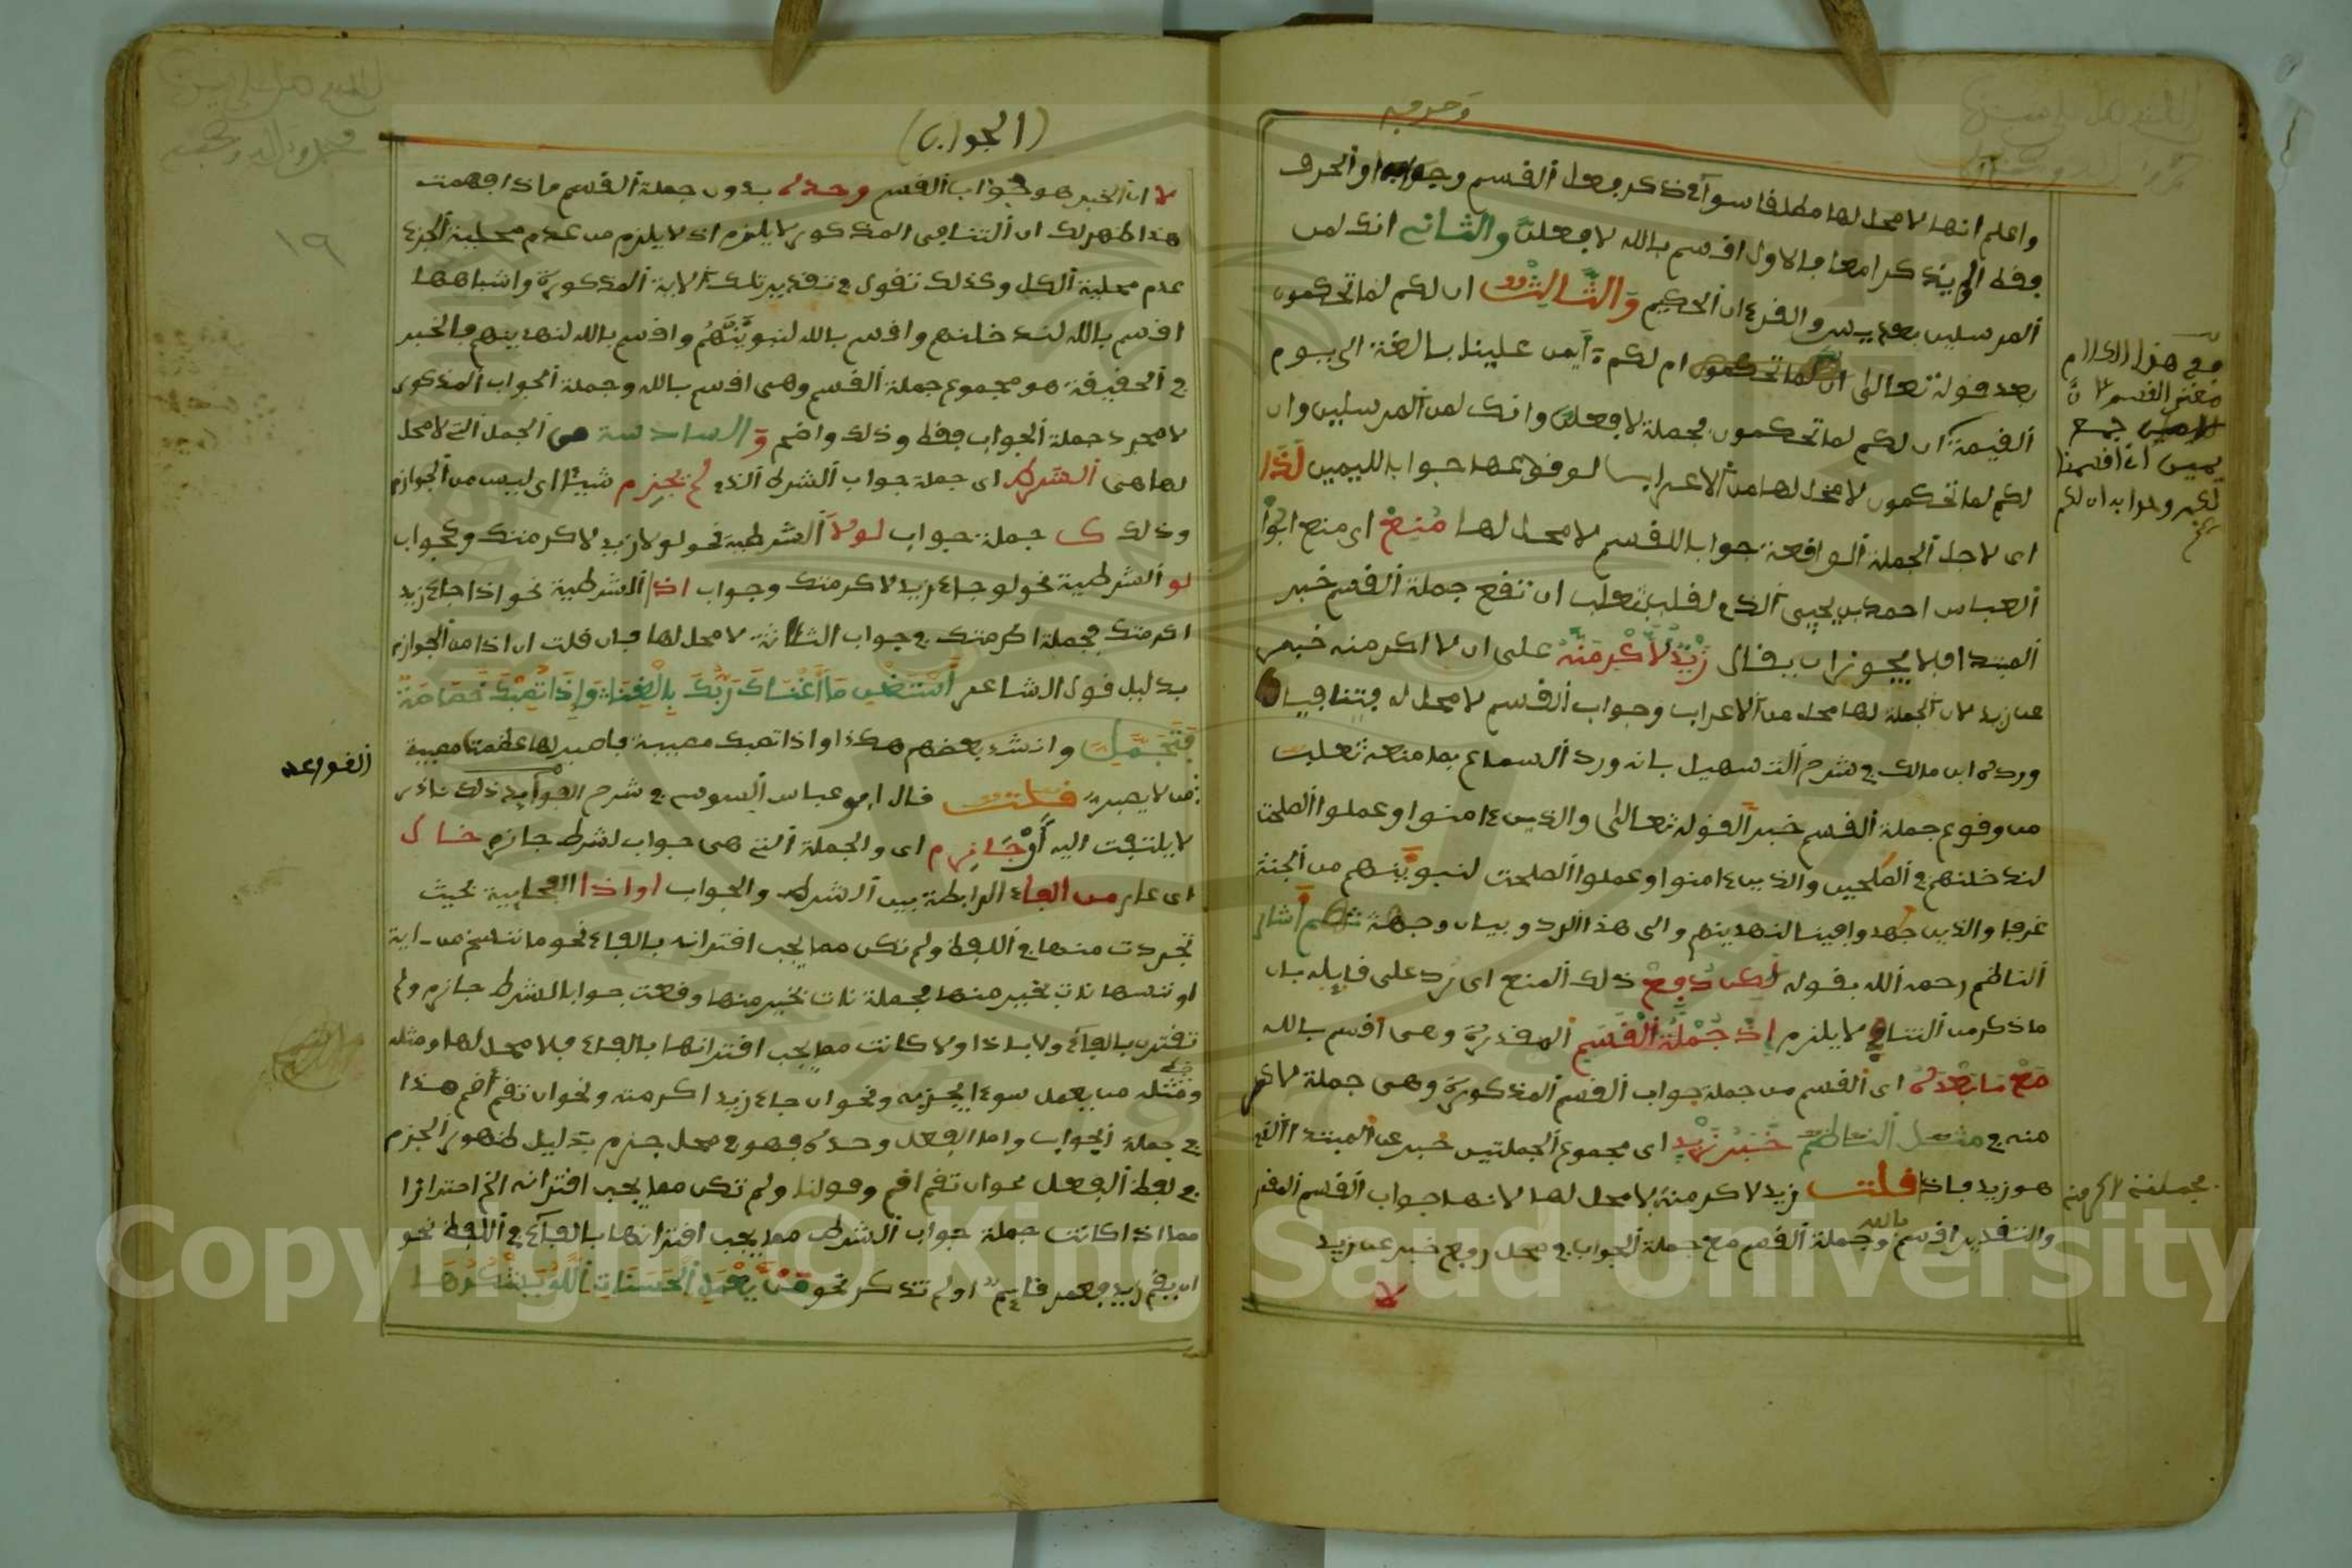 وحرفيه
واعلم انها لا محل لها مطلقا سواء ذكر فعل القسم وجوابه او الحرف
فقط او لم يذكرا معا فالاول اقسم بالله لافعلن والثاني انك لمن
المرسلين بعد يس والقرءان الحكيم والثالث ان لكم لما تحكمون
بعد قوله تعالى ام لكم أيمن علينا بالغة الى يوم
القيمة ان لكم لما تحكمون فجملة لافعلن وانك لمن المرسلين وان
لكم لما تحكمون لا محل لها من الاعراب لوقوعها جوابا لليمين لذا
اى لاجل الجملة الواقعة جوابا للقسم لا محل لها منع اى منع ابو
العباس احمد بن يحيى الذي لقب بثعلب ان تقع جملة القسم خبر
المبتدا فلا يجوز ان يقال زيد لأكرمنه على ان لا اكرمنه خبر
عن زيد لان الجملة لها محل من الاعراب وجواب القسم لا محل له فيتنافيان
ورده ابن مالك في شرح التسهيل بانه ورد السماع بما منعه ثعلب
من وقوع جملة القسم خبرا لقوله تعالى والذين ءامنوا وعملوا الصلحت
لندخلنهم في الصلحين والذين ءامنوا وعملوا الصلحت لنبوينهم من الجنة
غرفا والذين جهدوا فينا لنهدينهم والى هذا الرد وبيان وجهة ثم اشار
الناظم رحمه الله بقوله لكن دفع ذلك المنع اى رد على قايله بان
ما ذكر من التنافي لا يلزم اذ جملة القسم المقدرة وهى اقسم بالله
مع ما بعده اى القسم من جملة جواب القسم المذكورة وهى جملة لاكر
منه في مثل الناظم خبر زيد اى مجموع الجملتين خبر عن المبتدا الذي
هو زيد فاذا قلت زيد لاكرمنه لا محل لها لانها جواب القسم المقدر
والتقدير اقسم بالله وجملة القسم مع جملة الجواب في محل رفع خبر عن زيد
لا
مع هذا الكلام
يمين
وجوابه ان لكم
فجملة لاكرمنه
(الجواب)
١٩
لا ان الخبر هو جواب القسم وحده بدون جملة القسم فاذا فهمت
هذا ظهر لك ان التنافي المذكور لا يلزم اذ لا يلزم من عدم محلية الجزء
عدم محلية الكل وكذلك تقول في تقدير تلك الاية المذكورة واشباهها
اقسم بالله لندخلنهم واقسم بالله لنبوينهم واقسم بالله لنهدينهم فالخبر
في الحقيقة هو مجموع جملة القسم وهى اقسم بالله وجملة الجواب المذكور
لا مجرد جملة الجواب فقط وذلك واضح و السادسة من الجمل التي لا محل
لها هى الشرط اى جملة جواب الشرط الذي لم يجزم شيئا اى ليس من الجوازم
وذلك ك جملة جواب لولا الشرطية نحو لولا زيد لاكرمتك وكجواب
لو الشرطية نحو لو جاء زيد لاكرمتك وجواب اذا الشرطية نحو اذا جاء زيد
اكرمتك فجملة اكرمتك في جواب الثلاثة لا محل لها فان قلت ان اذا من الجوازم
بدليل قول الشاعر استغن ما أغناك ربك بالغنا وإذا تصبك خصاصة
فتجمل وانشد بعضهم هكذا واذا تصبك مصيبة فاصبر لها عظمت مصيبة
من لا يصبر قلت قال ابو عباس السوسي في شرح القواعد ذلك نادر
القواعد
لا يلتفت اليه أو جازم اى والجملة التي هى جواب لشرط جازم خال
اى عار من الفاء الرابطة بين الشرط والجواب او اذا الفجايية بحيث
تجردت منها في اللفظ ولم تكن مما يجب اقترانه بالفاء نحو ما ننسخ من اية
او ننسها نات بخير منها فجملة نات بخير منها وقعت جوابا لشرط جازم ولم
تقترن بالفاء ولا باذا ولا كانت مما يجب اقترانها بالفاء فلا محل لها ومثله
ومثله من يعمل سوءا يجز به ونحو ان جاء زيد اكرمته ونحو ان تقم أقم هذا
في جملة الجواب واما الفعل وحده فهو في محل جزم بدليل ظهور الجزم
في لفظ الفعل نحو ان تقم اقم وقولنا ولم تكن مما يجب اقترانه الخ احترازا
مما اذا كانت جملة جواب الشرط مما يجب اقترانها بالفاء في اللفظ نحو
ان يقم زيد فعمر قايم او لم تذكر نحو من يفعل الحسنات الله يشكرها
Copyright © King Saud University